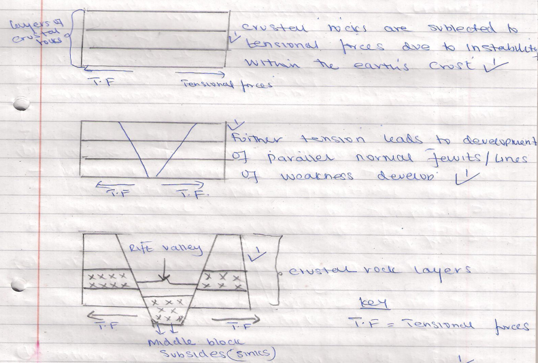 Layers of
crustal
rocks
crustal rocks are subjected to
tensional forces due to instability
within the earth's crust
T.F
Tensional forces
Further tension leads to development
of parallel normal fewits/lines
of weakness develop
T.F
T.F
Rift valley
crustal rock layers
Key
T.F
T.F
T.F = Tensional forces
Middle block
subsides (sinks)